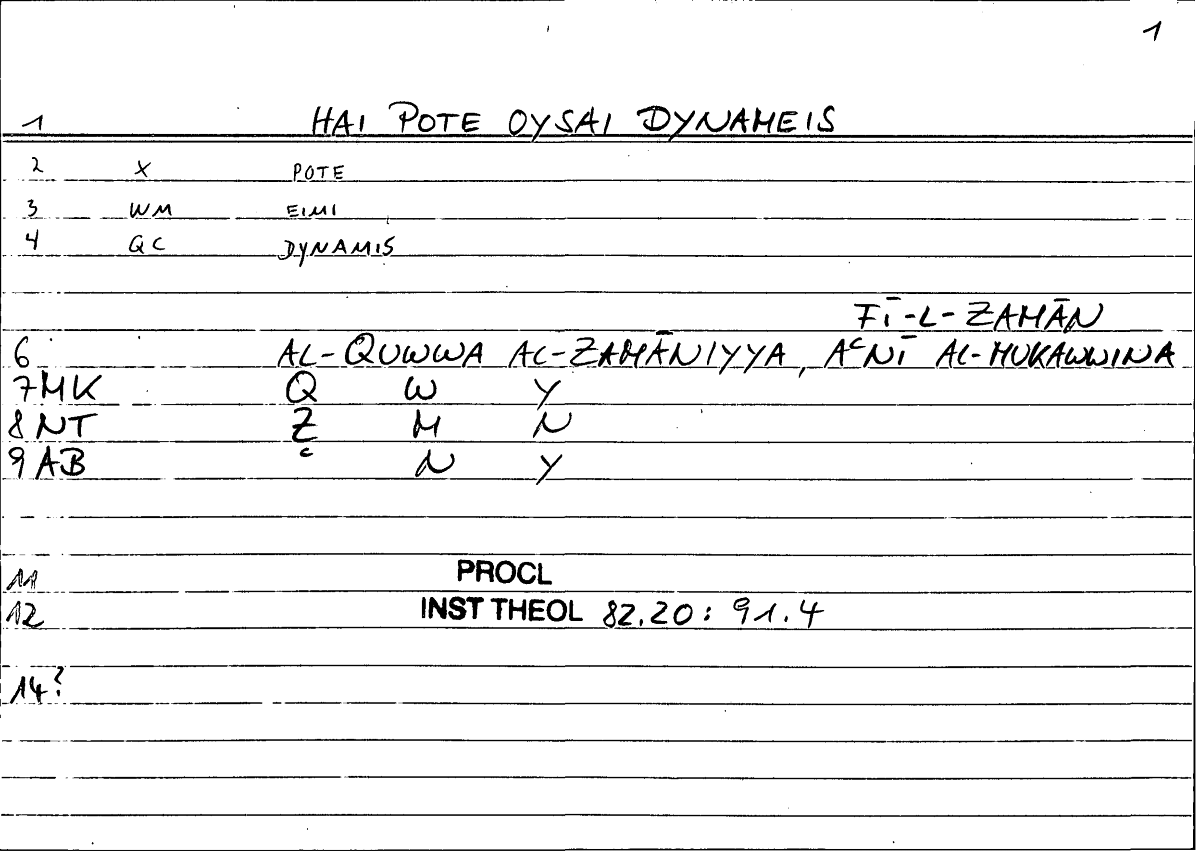 1
1 HAI POTE OYSAI DYNAMEIS
2 X POTE
3 WM EIMI
4 QC DYNAMIS
FĪ-L-ZAMĀN
6 AL-QUWWA AL-ZAMĀNIYYA, AʿNĪ AL-MUKAWWINA
7 MK Q W Y
8 NT Z M N
9 AB ʿ N Y
11 PROCL
12 INST THEOL 82.20: 91.4
14?